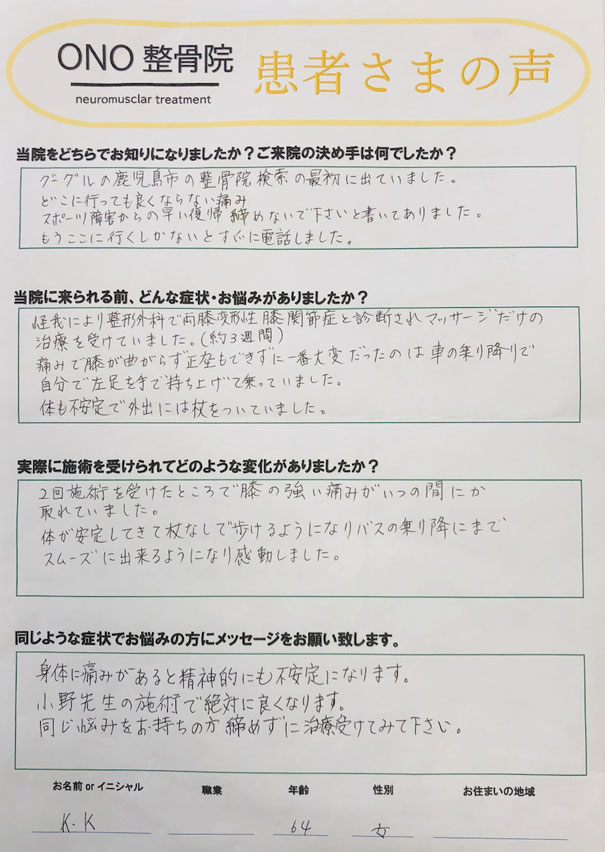 ONO 整骨院
neuromusclar treatment
患者さまの声
当院をどちらでお知りになりましたか？ご来院の決め手は何でしたか？
グーグルの鹿児島市の整骨院検索の最初に出ていました。
どこに行っても良くならない痛み
スポーツ障害からの早い復帰 締めないで下さいと書いてありました。
もうここに行くしかないとすぐに電話しました。
当院に来られる前、どんな症状・お悩みがありましたか？
怪我により整形外科で両膝変形性膝関節症と診断されマッサージだけの
治療を受けていました。(約3週間)
痛みで膝が曲がらず正座もできずに一番大変だったのは車の乗り降りで
自分で左足を手で持ち上げて乗っていました。
体も不安定で外出には杖をついていました。
実際に施術を受けられてどのような変化がありましたか？
2回施術を受けたところで膝の強い痛みがいつの間にか
取れていました。
体が安定してきて杖なしで歩けるようになりバスの乗り降にまで
スムーズに出来るようになり感動しました。
同じような症状でお悩みの方にメッセージをお願い致します。
身体に痛みがあると精神的にも不安定になります。
小野先生の施術で絶対に良くなります。
同じ悩みをお持ちの方 締めずに治療受けてみて下さい。
お名前 or イニシャル 職業 年齢 性別 お住まいの地域
K.K 64 女